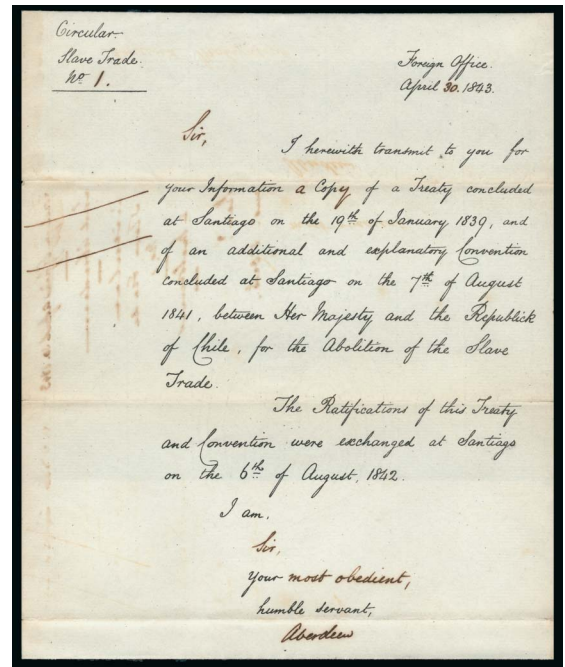 Circular.
Slave Trade.
No 1.
Foreign Office.
April 30. 1843.
Sir,
I herewith transmit to you for
your Information a Copy of a Treaty concluded
at Santiago on the 19th of January 1839, and
of an additional and explanatory Convention
concluded at Santiago on the 7th of August
1841, between Her Majesty and the Republick
of Chile, for the Abolition of the Slave
Trade.
The Ratifications of this Treaty
and Convention were exchanged at Santiago
on the 6th of August, 1842.
I am,
Sir,
Your most obedient,
humble servant,
Aberdeen